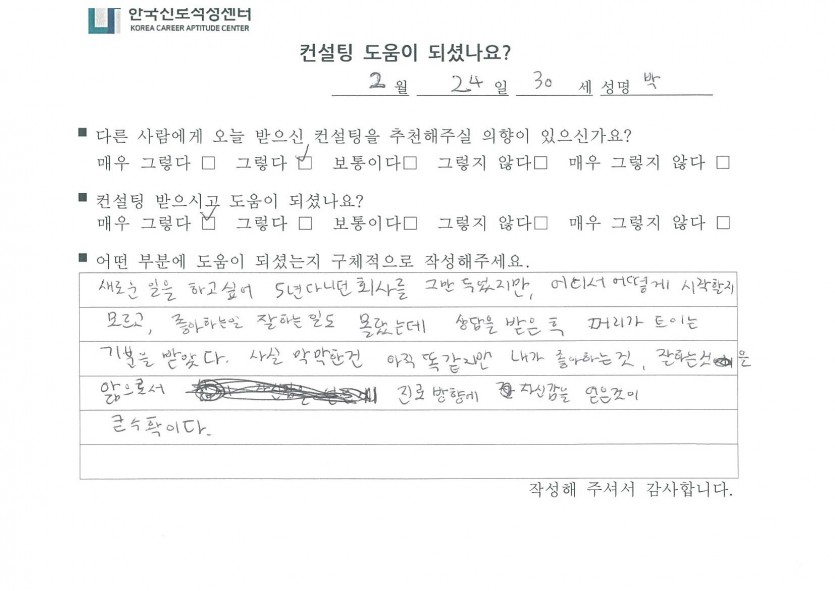 한국진로적성센터
KOREA CAREER APTITUDE CENTER
컨설팅 도움이 되셨나요?
2 월 24 일 30 세 성명 박
■ 다른 사람에게 오늘 받으신 컨설팅을 추천해주실 의향이 있으신가요?
매우 그렇다 □ 그렇다 ☑ 보통이다□ 그렇지 않다□ 매우 그렇지 않다 □
■ 컨설팅 받으시고 도움이 되셨나요?
매우 그렇다 ☑ 그렇다 □ 보통이다□ 그렇지 않다□ 매우 그렇지 않다 □
■ 어떤 부분에 도움이 되셨는지 구체적으로 작성해주세요.
새로운 일을 하고싶어 5년다니던 회사를 그만 두었지만, 어디서 어떻게 시작할지
모르고, 좋아하는일 잘하는 일도 몰랐는데 상담을 받은 후 머리가 트이는
기분을 받았다. 사실 막막한건 아직 똑같지만 내가 좋아하는 것, 잘하는것 을
앎으로서 진로 방향에 자신감을 얻은것이
큰수확이다.
작성해 주셔서 감사합니다.